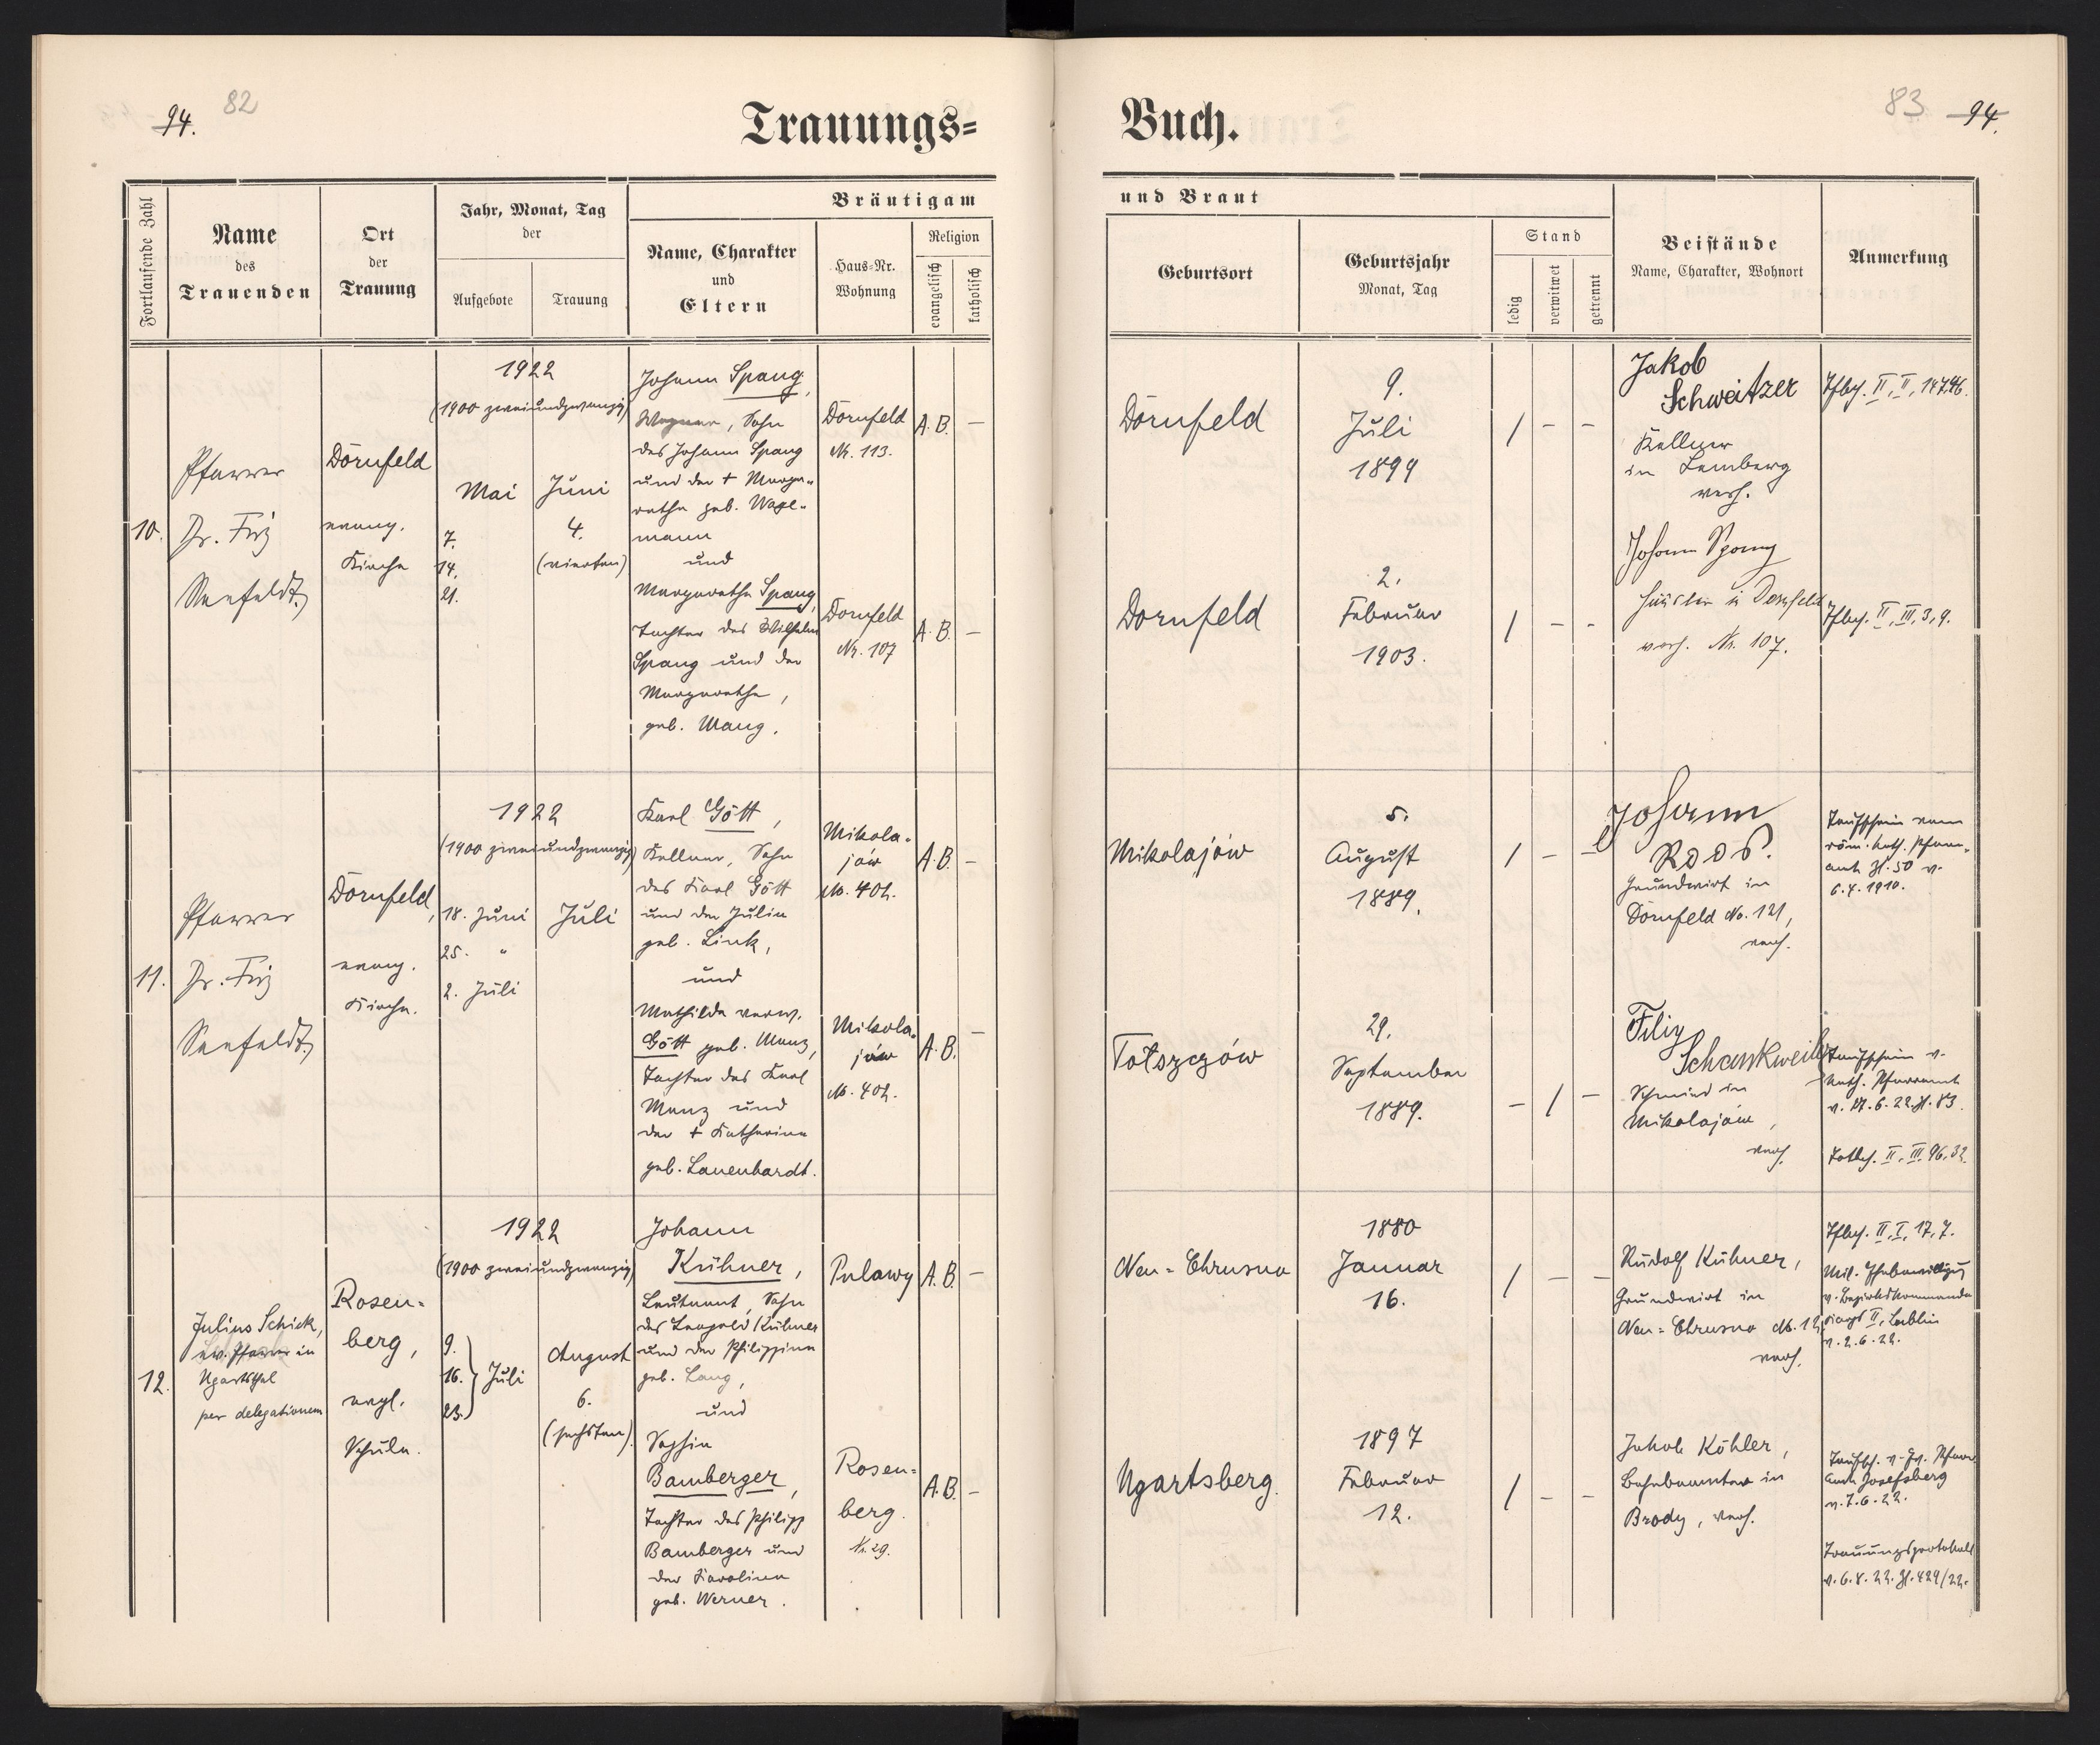 94. 82
Trauungs=
Buch.
83 94.
Fortlaufende Zahl
Name
des
Trauenden
Ort
der
Trauung
Jahr, Monat, Tag
der
Aufgebote
Trauung
Bräutigam
Name, Charakter
und
Eltern
Haus=Nr.
Wohnung
Religion
evangelisch
katholisch
und Braut
Geburtsort
Geburtsjahr
Monat, Tag
Stand
ledig
verwitwet
getrennt
Beistände
Name, Charakter, Wohnort
Anmerkung
10.
Pfarrer
Dr. Friz
Seefeldt.
Dornfeld
evang.
Kirche
1922
(1900 zweiundzwanzig)
Mai
7.
14.
21.
Juni
4.
(vierten)
Johann Spang,
Wagner, Sohn
des Johann Spang
und der + Marga-
retha geb. Wagl-
mann
und
Margaretha Spang,
Tochter des Wilhelm
Spang und der
Margaretha,
geb. Mang.
Dornfeld
Nr. 113.
A.B. –
Dornfeld
Nr. 107
A.B. –
Dornfeld
9.
Juli
1899
/ – –
Jakob
Schweitzer
Kellner
in Lemberg
verh.
Dornfeld
2.
Februar
1903.
/ – –
Johann Spang
Häusler in Dornfeld
verh. Nr. 107.
II, III, 3, 9.
11.
Pfarrer
Dr. Friz
Seefeldt.
Dornfeld,
evang.
Kirche.
1922
(1900 zweiundzwanzig)
18. Juni
25. "
2. Juli
Juli
Karl Gött,
Kellner, Sohn
des Karl Gött
und der Julia
geb. Link,
und
Mathilde verw.
Gött geb. Manz,
Tochter des Karl
Manz und
der + Katharina
geb. Lauenhardt.
Mikola-
jów
No. 402.
A.B. –
Mikola-
jów
No. 402.
A.B. –
Mikolajów
5.
August
1889.
/ – –
Johann
Roos.
Grundwirt in
Dornfeld No. 121,
verh.
Taufschein vom
röm. kath. Pfarr-
amt Zl. 50 v.
6.4.1910.
Tołszczów
29.
September
1889.
– / –
Filip
Schankweiler
Schmied in
Mikolajów,
verh.
Taufschein v.
kath. Pfarramt
v. 17.6.22. Zl. 83.
II, III, 96, 32.
12.
Julius Schick,
ev. Pfarrer in
Ugartsthal
per delegationem
Rosen-
berg,
evgl.
Schule.
1922
(1900 zweiundzwanzig)
9.
16. } Juli
23.
August
6.
(sechsten)
Johann
Kühner,
Leutnant, Sohn
des Leopold Kühner
und der Philippina
geb. Lang,
und
Sophia
Bamberger,
Tochter des Philipp
Bamberger und
der Karolina
geb. Werner.
Pulawy
A.B. –
Rosen-
berg.
Nr. 29.
A.B. –
Neu-Chrusno
1880
Januar
16.
/ – –
Rudolf Kühner,
Grundwirt in
Neu-Chrusno No. 12,
verh.
II, I, 17, 7.
Mil. Ehebewilligung
v. Bezirkskommando
II, Lublin
v. 2.6.22.
Ugartsberg.
1897
Februar
12.
/ – –
Jakob Köhler,
Bahnbeamter in
Brody, verh.
Taufsch. v. Ev. Pfarr
amt Josefsberg
v. 7.6.22.
Trauungsprotokoll
v. 6.8.22. Zl. 429/22.